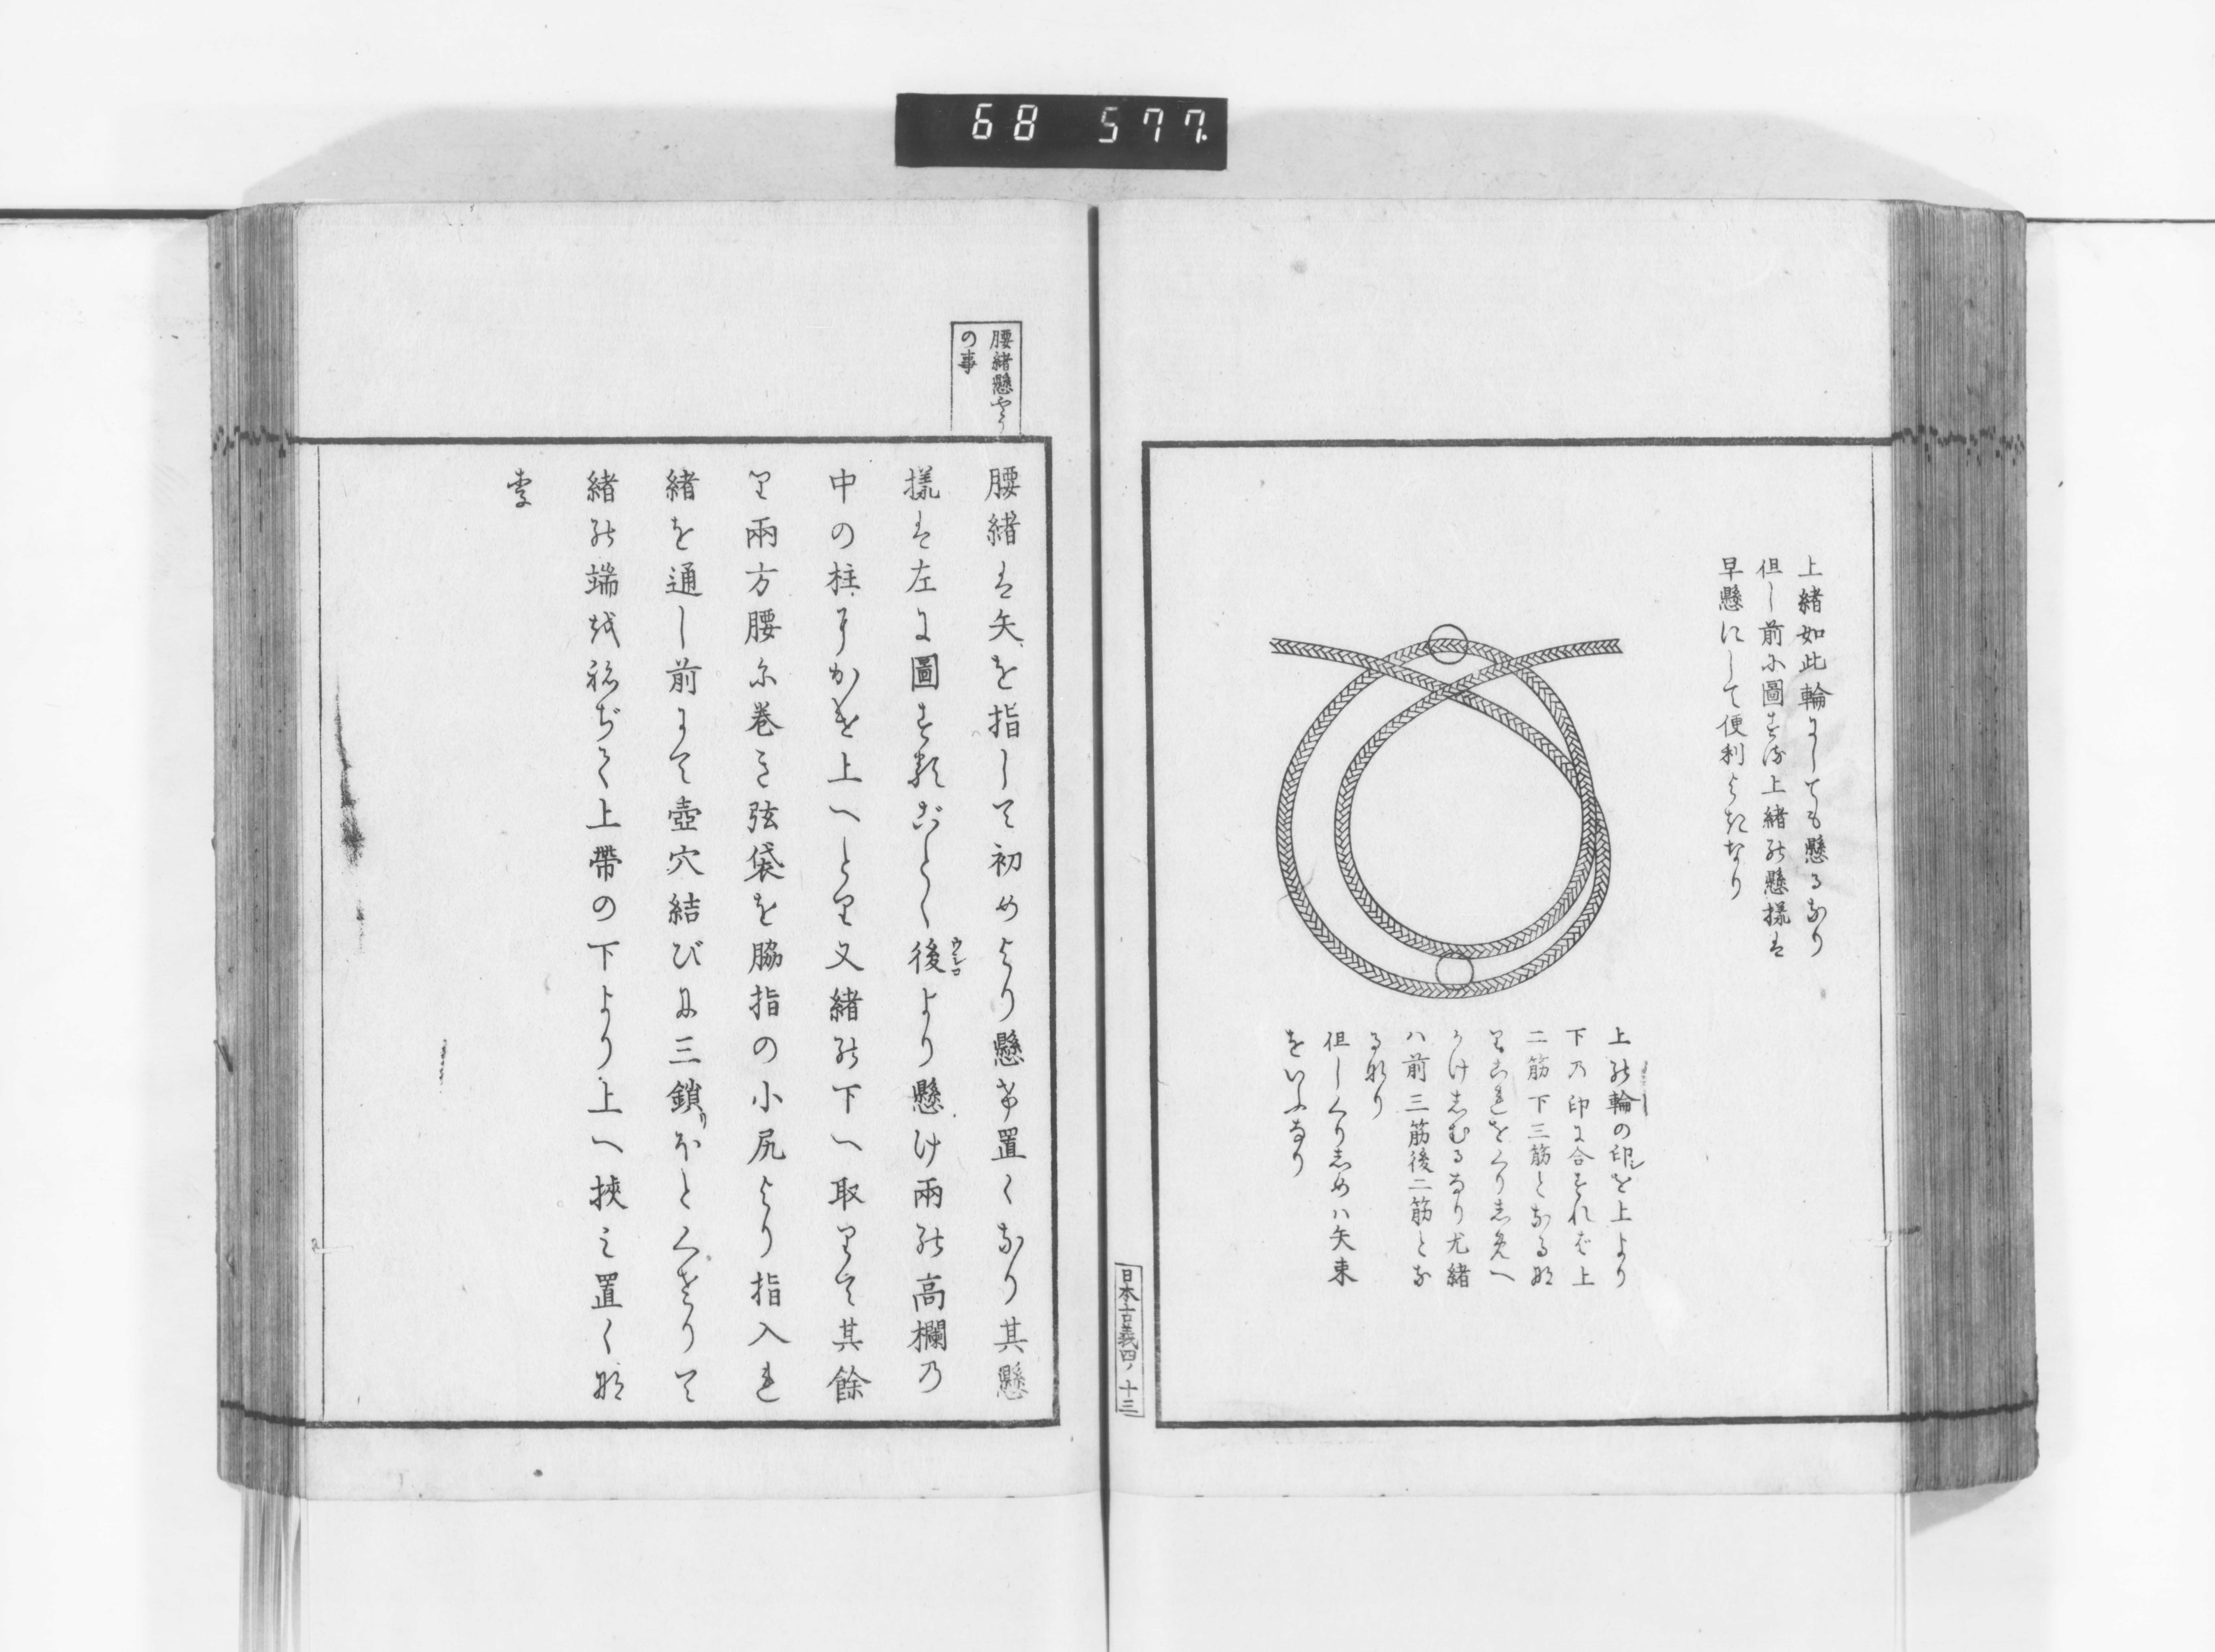 68 577
上緒如此輪にしても懸るなり
但し前に圖する上緒の懸様は
早懸にして便利よきなり
上の輪の印シを上より
下の印に合すれば上
二筋下三筋となるな
りこれをくりしめへ
かけしむるなり尤緒
ハ前三筋後二筋とな
るなり
但しくりしめハ矢束
をいふなり
日本古義四ノ十三
腰緒懸やう
の事
腰緒は矢を指して初めより懸け置くなり其懸
様は左に圖する如ごとく後ウシロより懸け兩の高欄の
中の柱にかけ上へとり又緒の下へ取りて其餘
り兩方腰に巻き弦袋を脇指の小尻より指入れ
緒を通し前にて壺穴結びに三鎖リほとくさりて
緒の端をねぢて上帶の下より上へ挾み置くな
り